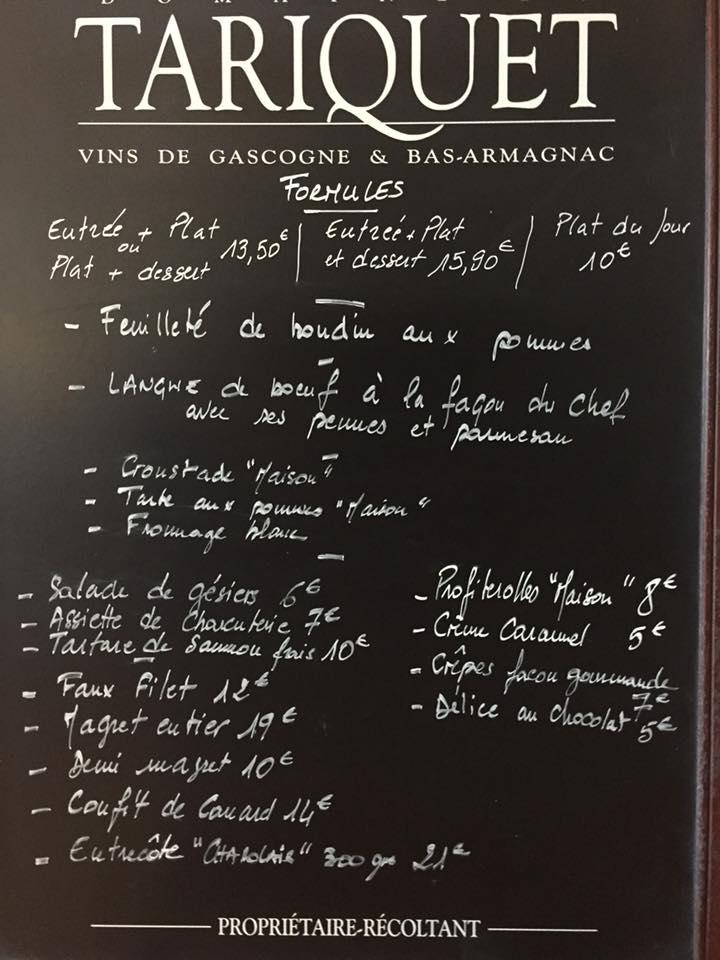 TARIQUET
VINS DE GASCOGNE & BAS-ARMAGNAC
FORMULES
Entrée + Plat
ou
Plat + dessert
13,50€
Entrée + Plat
et dessert 15,90€
Plat du Jour
10€
- Feuilleté de boudin aux pommes
- LANGUE de boeuf à la façon du chef
avec ses pennes et parmesan
- Croustade "Maison"
- Tarte aux pommes "Maison"
- Fromage blanc
- Salade de gésiers 6€
- Assiette de Charcuterie 7€
- Tartare de Saumon frais 10€
- Faux Filet 12€
- Magret entier 19€
- Demi magret 10€
- Confit de Canard 14€
- Entrecôte "CHAROLAIS" 300 gr 21€
- Profiterolles "Maison" 8€
- Crème Caramel 5€
- Crêpes façon gourmande
7€
- Délice au chocolat 5€
PROPRIÉTAIRE-RÉCOLTANT